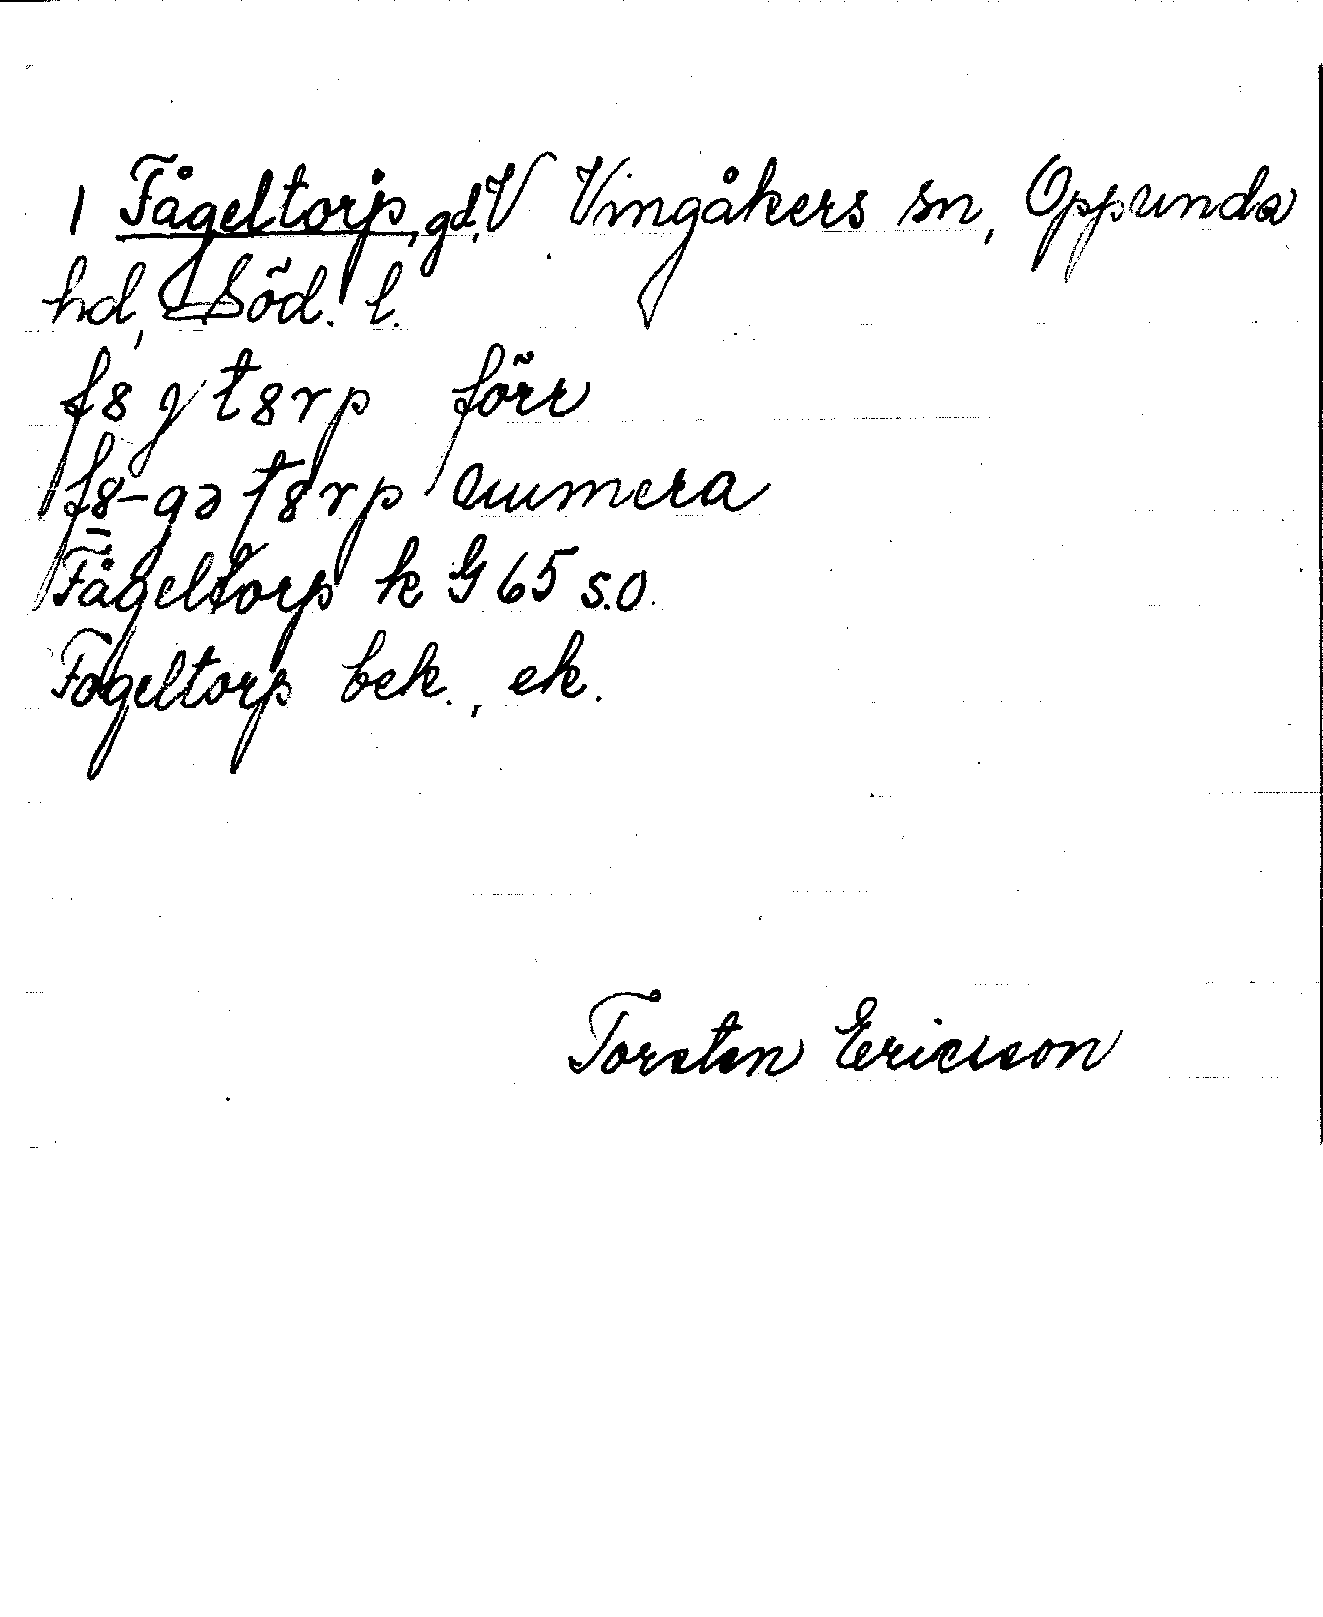 1 Fågeltorp, gd, V Vingåkers sn, Oppunda
hd, Söd. l.
f8gt8rp förr
f8-gət8rp numera
Fågeltorp k G 65 s.o.
Fogeltorp bek., ek.
Torsten Ericsson